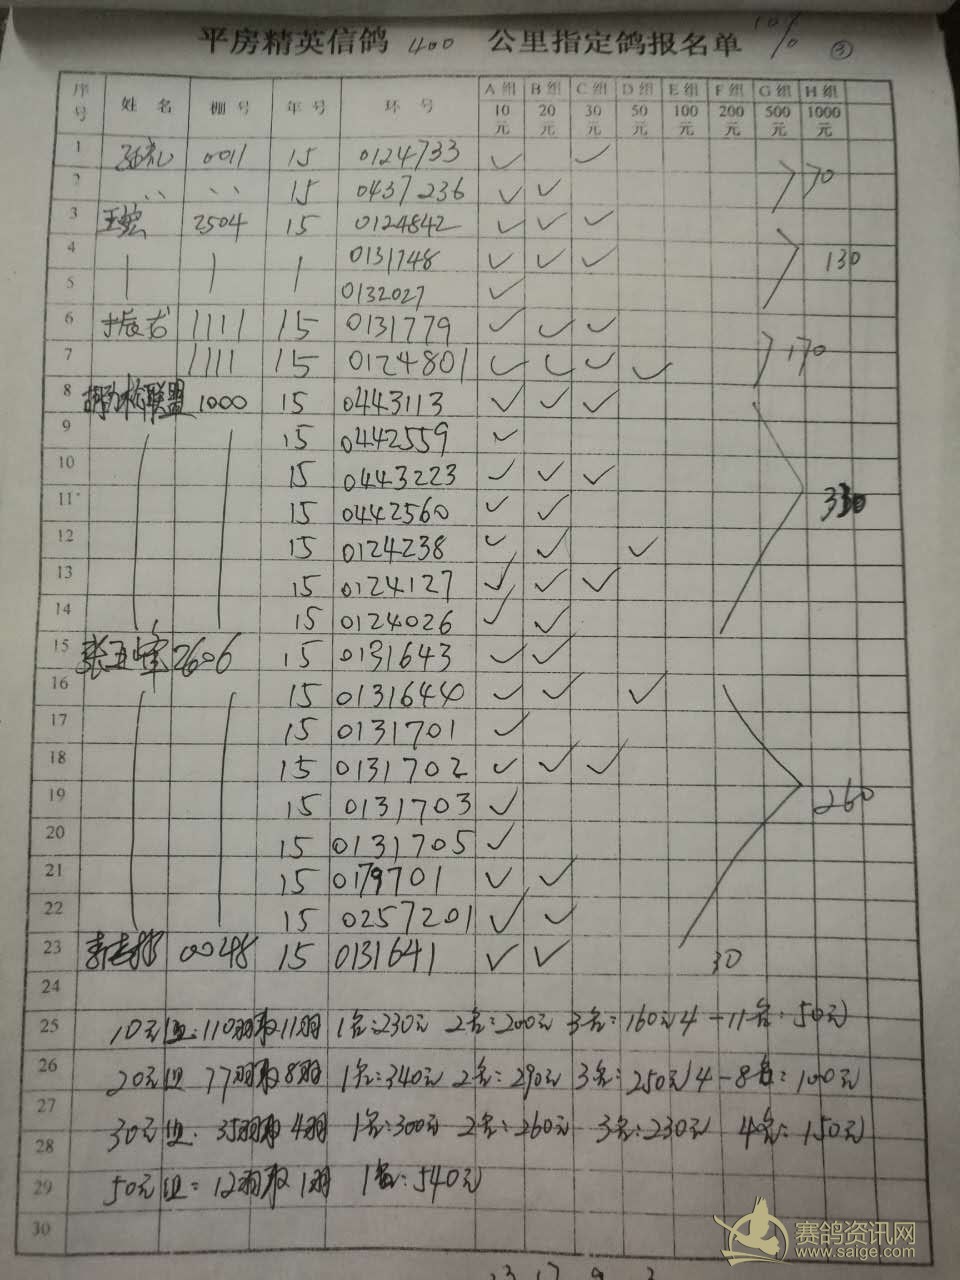 平房精英信鸽 400 公里指定鸽报名单 10% ③
序号 姓名 棚号 年号 环号 A组 B组 C组 D组 E组 F组 G组 H组
10元 20元 30元 50元 100元 200元 500元 1000元
1 0011 15 0124733 ✓ ✓ 70
2 〃 〃 15 0437236 ✓ ✓
3 2504 15 0124842 ✓ ✓ ✓
4 0131748 ✓ ✓ ✓ 130
5 0132027 ✓
6 1111 15 0131779 ✓ ✓ ✓
7 1111 15 0124801 ✓ ✓ ✓ ✓ 170
8 联盟 1000 15 0443113 ✓ ✓ ✓
9 15 0442559 ✓
10 15 0443223 ✓ ✓ ✓
11 15 0442560 ✓ ✓ 330
12 15 0124238 ✓ ✓ ✓
13 15 0124127 ✓ ✓ ✓
14 15 0124026 ✓ ✓
15 张玉峰 2606 15 0131643 ✓ ✓
16 15 0131640 ✓ ✓ ✓
17 15 0131701 ✓
18 15 0131702 ✓ ✓ ✓
19 15 0131703 ✓ 260
20 15 0131705 ✓
21 15 0179701 ✓ ✓
22 15 0257201 ✓ ✓
23 0048 15 0131641 ✓ ✓ 30
24
25 10元组:110羽取11羽 1名:230元 2名:200元 3名:160元 4-11名:50元
26 20元组 77羽取8羽 1名:340元 2名:290元 3名:250元 4-8名:100元
27
28 30元组:35羽取4羽 1名:300元 2名:260元 3名:230元 4名:150元
29 50元组:12羽取1羽 1名:540元
30
赛鸽资讯网
www.saige.com